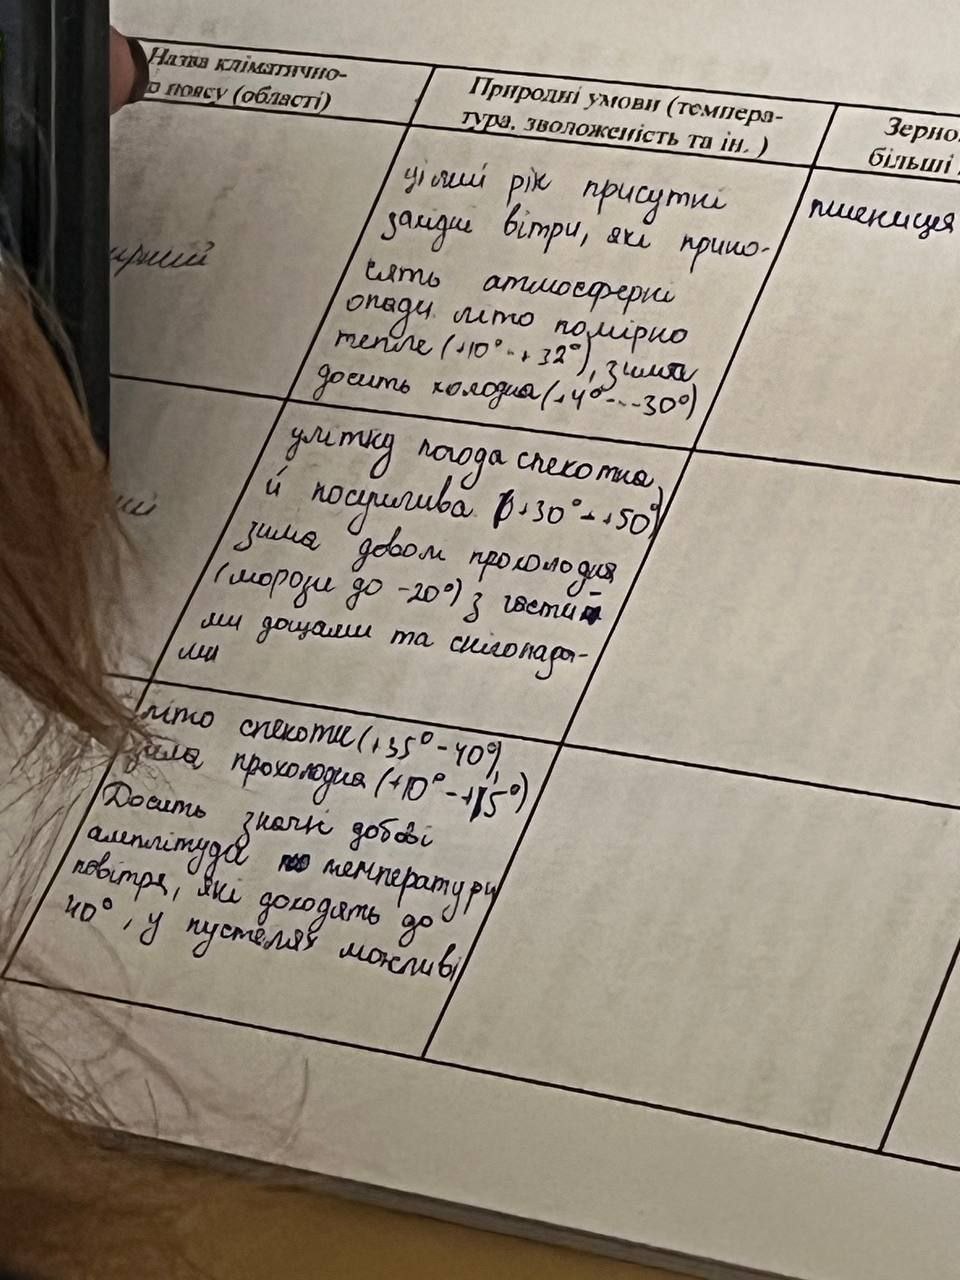 Назва кліматично-
о поясу (області)
Природні умови (темпера-
тура, зволоженість та ін. )
Зерно
більші
ирний
цілий рік присутні
західні вітри, які прино-
сять атмосферні
опади. літо помірно
тепле (+10° - +32°), зима
досить холодна (+4° - -30°)
пшениця
ий
улітку погода спекотна
й посушлива (+30° - +50°)
зима доволі прохолодна
(морози до -20°) з части
ми дощами та снігопада-
ми
літо спекотне (+35° - 40°),
зима прохолодна (+10° - +15°)
Досить значні добові
амплітуда температури
повітря, які доходять до
40°, у пустелях можливі